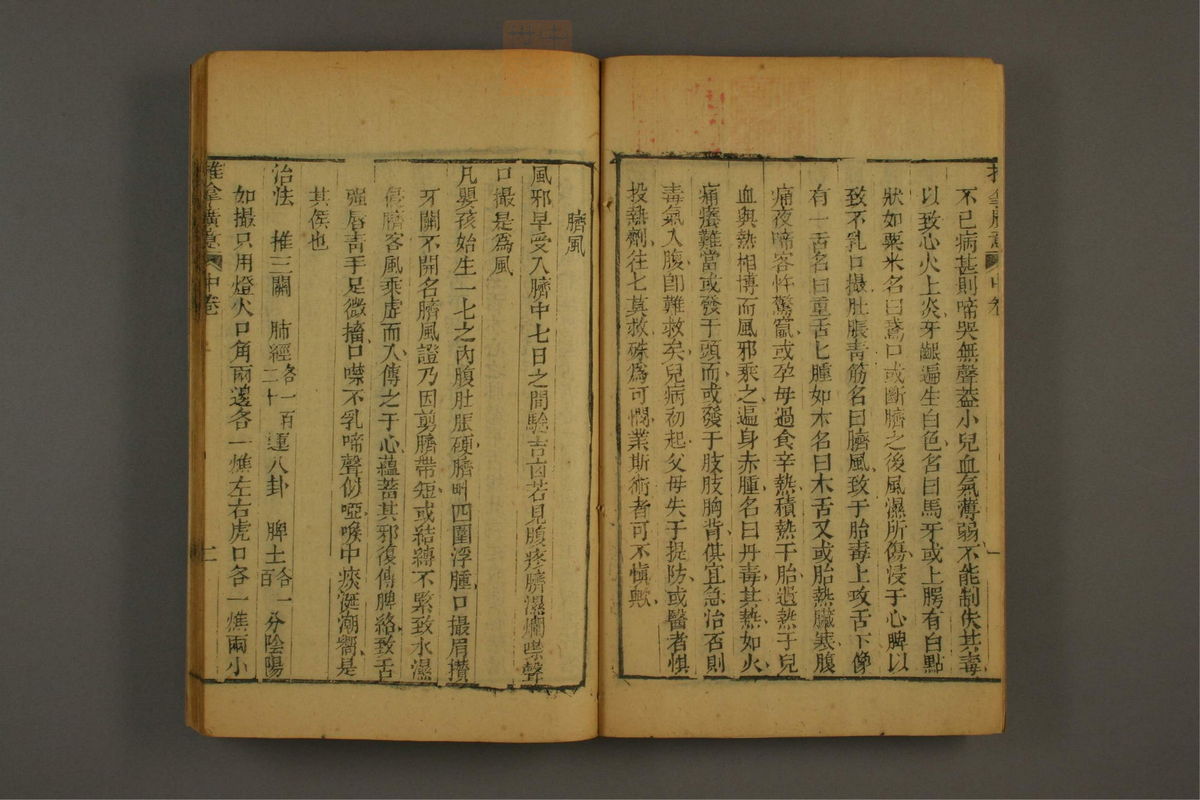 推拿廣意 中卷 一
不已病甚則啼哭無聲蓋小兒血氣薄弱不能制伏其毒
以致心火上炎牙齦遍生白色名曰馬牙或上腭有白點
狀如粟米名曰鵞口或斷臍之後風濕所傷浸于心脾以
致不乳口撮肚脹青筋名曰臍風致于胎毒上攻舌下像
有一舌名曰重舌七腫如木名曰木舌又或胎熱臟寒腹
痛夜啼客忤驚竄或孕母過食辛熱積熱于胎遺熱于兒
血與熱相博而風邪乘之遍身赤腫名曰丹毒其熱如火
痛癢難當或發于頭面或發于肢肢胸背俱宜急治否則
毒氣入腹卽難救矣兒病初起父母失于提防或醫者惧
投熱劑往七莫救殊為可憫業斯術者可不慎歟
臍風
風邪早受入臍中七日之間驗吉凶若見腹疼臍濕爛噤聲
口撮是為風
凡嬰孩始生一七之內腹肚脹硬臍畔四圍浮腫口撮眉攢
牙關不開名臍風證乃因剪臍帶短或結縛不緊致水濕
侵臍客風乘虛而入傳之于心蘊蓄其邪復傳脾絡致舌
强唇青手足微搐口噤不乳啼聲似啞喉中痰涎潮嚮是
其候也
治法 推三關 肺經各一百二十 運八卦 脾土各一百 分陰陽
如撮只用燈火口角兩邊各一燋左右虎口各一燋兩小
推拿廣意 中卷 二